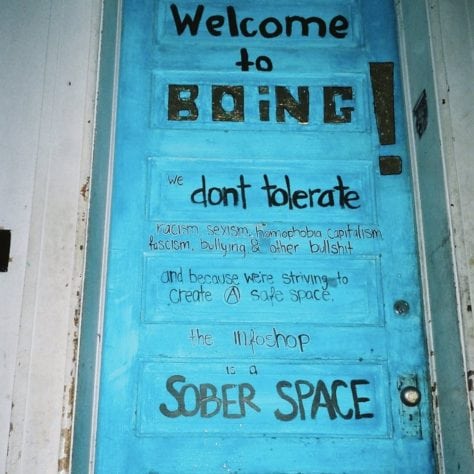 Welcome
to
BOING!
we dont tolerate
racism, sexism, homophobia, capitalism,
fascism, bullying & other bullshit
and because we're striving to
create Ⓐ safe space,
the infoshop
is a
SOBER SPACE